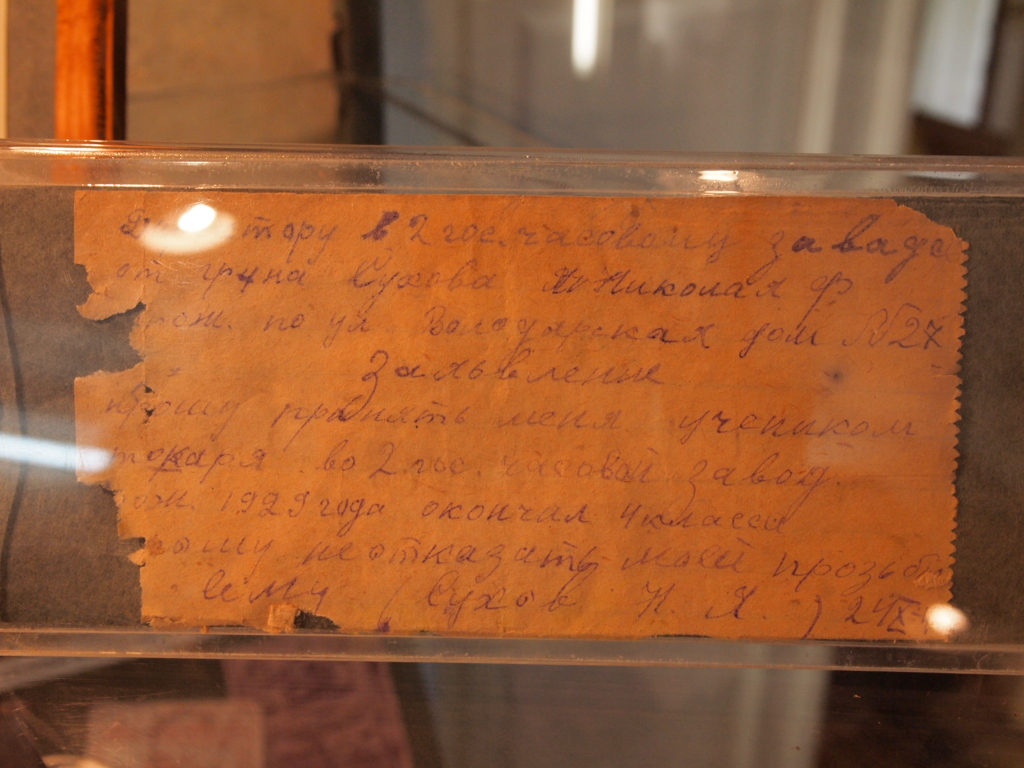 тору в 2 гос. часовому завада
от гр-на Сухова Николая Ф
прож. по ул Володарская дом №27
Заяьвление
прошу принять меня учеником
токаря во 2 гос. часовой завод.
рож. 1929 года окончал 4 класса
прошу неотказать моей прозьб
ему (Сухов Н. Я.) 24/IX